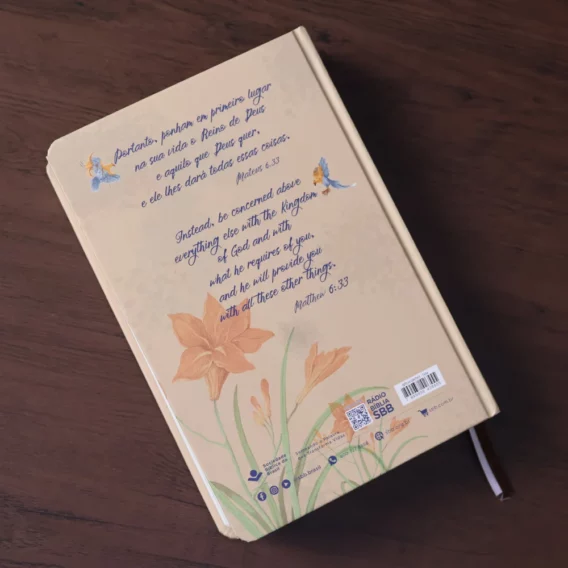 Portanto, ponham em primeiro lugar
na sua vida o Reino de Deus
e aquilo que Deus quer,
e ele lhes dará todas essas coisas.
Mateus 6.33
Instead, be concerned above
everything else with the Kingdom
of God and with
what he requires of you,
and he will provide you
with all these other things.
Matthew 6:33
RÁDIO
BÍBLIA
SBB
Sociedade
Bíblica do
Brasil